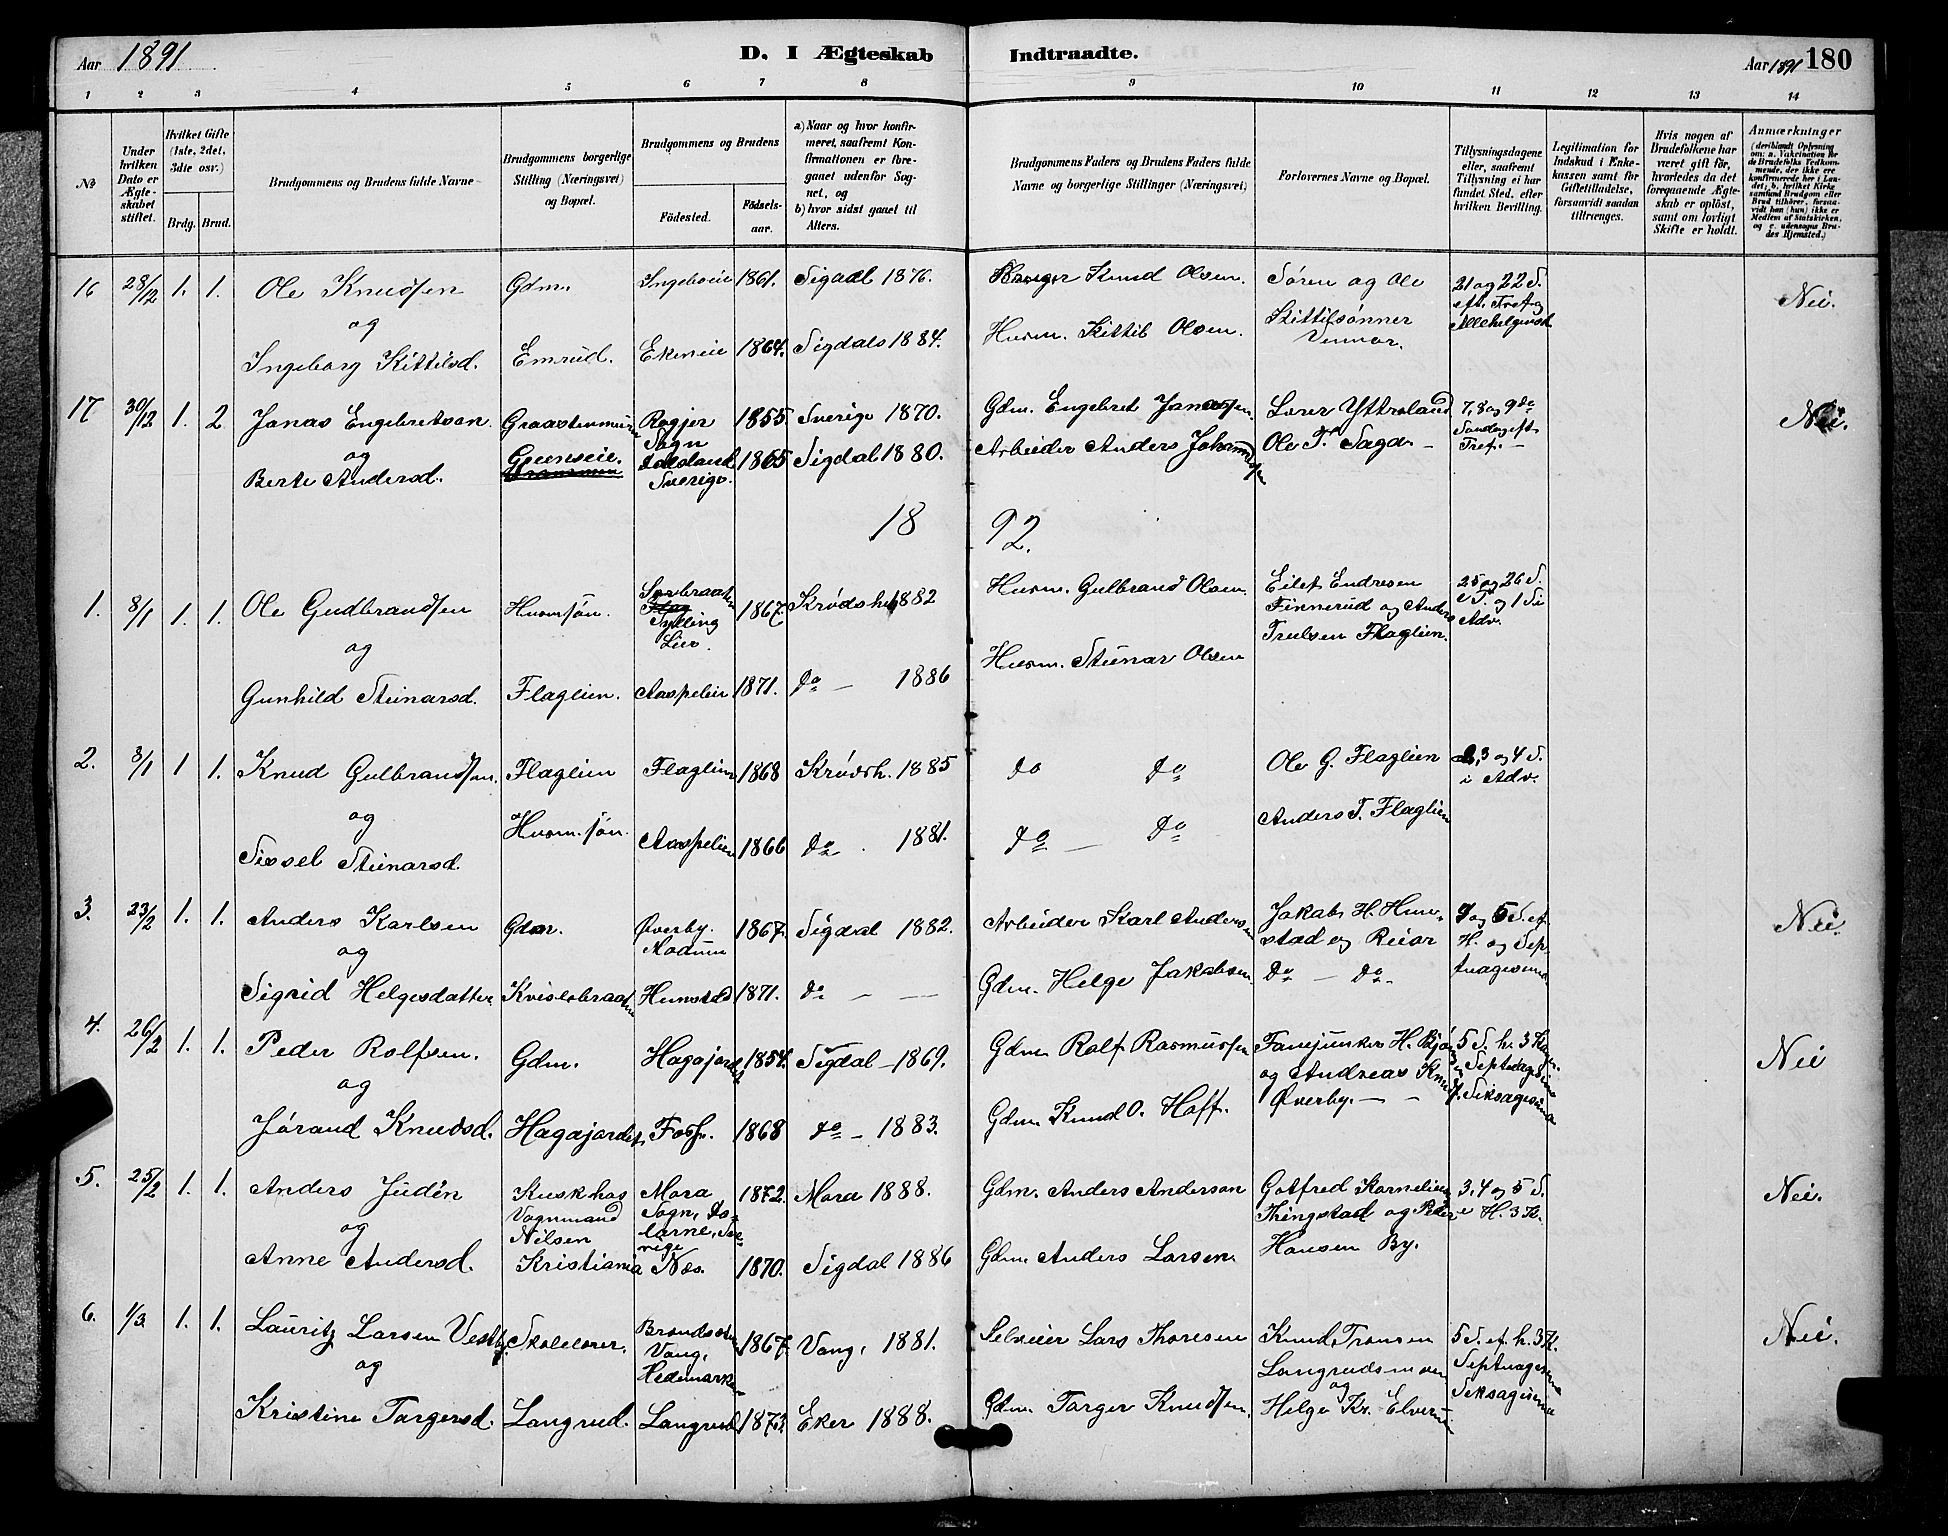 Aar 1891
D. I Ægteskab Indtraadte.
Aar 1891 180
1 2 3 4 5 6 7 8 9 10 11 12 13 14
No
Under hvilken Dato er Ægteskabet stiftet.
Hvilket Gifte (1ste, 2det, 3die osv.)
Brdg. Brud.
Brudgommens og Brudens fulde Navne
Brudgommens borgerlige Stilling (Næringsvei) og Bopæl.
Brudgommens og Brudens
Fødested. Fødselsaar.
a) Naar og hvor konfirmeret, saafremt Konfirmationen er foregaaet udenfor Sognet, og
b) hvor sidst gaaet til Alters.
Brudgommens Faders og Brudens Faders fulde Navne og borgerlige Stillinger (Næringsvei)
Forlovernes Navne og Bopæl.
Tillysningsdagene eller, saafremt Tillysning ei har fundet Sted, efter hvilken Bevilling.
Legitimation for Indskud i Enkekassen samt for Giftetilladelse, forsaavidt saadan tiltrænges.
Hvis nogen af Brudefolkene har været gift før, hvorledes da det foregaaende Ægteskab er opløst, samt om lovligt Skifte er holdt.
Anmærkninger (deriblandt Oplysning om: a. Vakcination for de Brudefolks Vedkommende, der ikke ere konfirmerede her i Landet; b. hvilket Kirkesamfund Brudgom eller Brud tilhører, forsaavidt han (hun) ikke er Medlem af Statskirken, og c. udensogns Brudes Hjemsted.)
16 28/12 1. 1. Ole Knudsen Gdm. 1861. Sigdal 1876. Knud Olsen. Søren og Ole 21 og 22 S. Nei.
og Kittilsønner
Ingeborg Kittilsd. Emrud. Ekeneie 1864. Sigdals 1884. Husm. Kittil Olsen.
17 30/12 1. 2 Jonas Engebretson Graastenmurer 1855 Sverige 1870. Gdm. Engebret Lærer Ytterland 7, 8 og 9de Nei.
og Sogn Dalsland
Berte Andersd. 1865 Sigdal 1880. Arbeider Anders Ole T. Tref.
Sverige.
18 92.
1. 8/1 1. 1. Ole Gudbrandsen Husmsøn. Sylling Lier. 1867. Krødsh. 1882 Husm. Gulbrand Olsen Eilet Endresen Finnerud og Anders Trulsen Flaglien. 25 og 26 S. e T. og 1 S i Adv.
og
Gunhild Steinarsd. Flaglien. Aaspelien 1871. do — 1886 Husm. Steinar Olsen
2. 8/1 1 1. Knud Gulbrandsen Flaglien Flaglien 1868 Krødsh. 1885 do do Ole G. Flaglien 3 og 4 S. i Adv.
og Husm. søn.
Sissel Steinarsd. Aaspelien 1866 do . 1881. do — do Anders T. Flaglien
3. 23/2 1. 1. Anders Karlsen Gdm. Øverby. Modum 1867. Sigdal 1882. Arbeider Karl Andersen Jakob H. Hunstad og Reiar og 5 S. ef. H. og Septuagesima Nei.
og
Sigrid Helgesdatter Kvislebraaten Hunstad 1871. do — — Gdm. Helge Jakobsen do — do
4. 26/2 1. 1. Peder Rolfsen. Gdm. Hagajordet 1854. Sigdal — 1869. Gdm. Rolf Rasmussen Fanejunker H. og Andreas Øverby. — — 5 S. h. 3 K. Septuagesima Seksagesima Nei
og
Jørand Knudsd. Hagajordet Foss. 1868 do — 1883. Gdm. Knud O. Hoff.
5. 25/2 1. 1. Anders Juden Kusk hos Vognmand Nilsen Mora Sogn, Dalarne, Sverige 1872. Mora 1888. Gdm. Anders Anderson Gotfred Kornelius Thingstad og Peder Hansen By. 3. 4 og 5 S. e. H. 3 K. Nei.
og
Anne Andersd. Kristiania Næs. 1870. Sigdal 1886 Gdm. Anders Larsen.
6. 1/3 1. 1. Lauritz Larsen Skolelærer. Vang, Hedemarken 1867. Vang, 1881. Selveier Lars Thoresen Knud Tronsen og Helge Kr. Elverud 5 S. ef. h. 3 K. Septuagesima Seksagesima Nei.
og
Kristine Targersd. Langrud. Langrud 1873. Eker 1888. Gdm. Targer Knudsen.